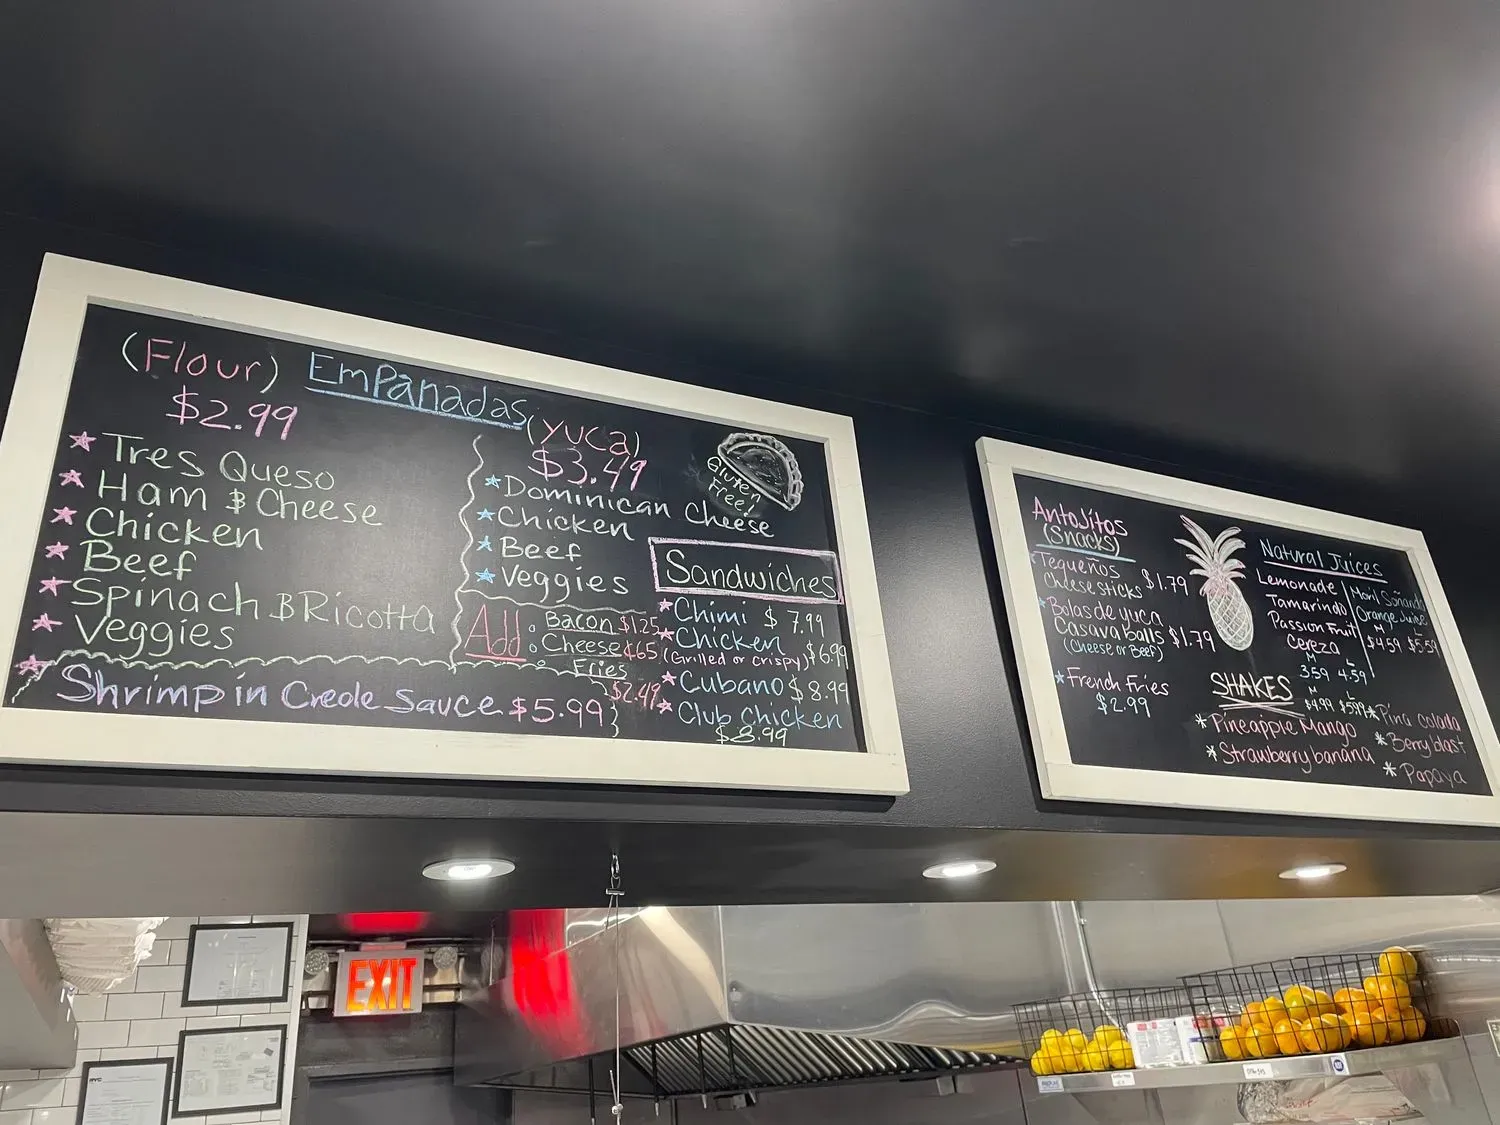 (Flour) Empanadas
$2.99
Tres Queso
Ham & Cheese
Chicken
Beef
Spinach & Ricotta
Veggies
Shrimp in Creole Sauce $5.99
(yuca)
$3.49
Dominican Cheese
Chicken
Beef
Veggies
Gluten
Free!
Add
Bacon $1.25
Cheese ¢65
Fries
$2.49
Sandwiches
Chimi $7.99
Chicken
(Grilled or crispy) $6.99
Cubano $8.99
Club Chicken
$8.99
Antojitos
(Snacks)
Tequeños
Cheese sticks $1.79
Bolas de yuca
Casava balls $1.79
(Cheese or Beef)
French Fries
$2.99
Natural Juices
Lemonade
Tamarindo
Passion Fruit
Cereza
M L
3.59 4.59
Orange Juice
M L
$4.59 $5.59
SHAKES
M L
$4.99 $5.99
Pineapple Mango
Strawberry banana
Pina colada
Berry blast
Papaya
EXIT